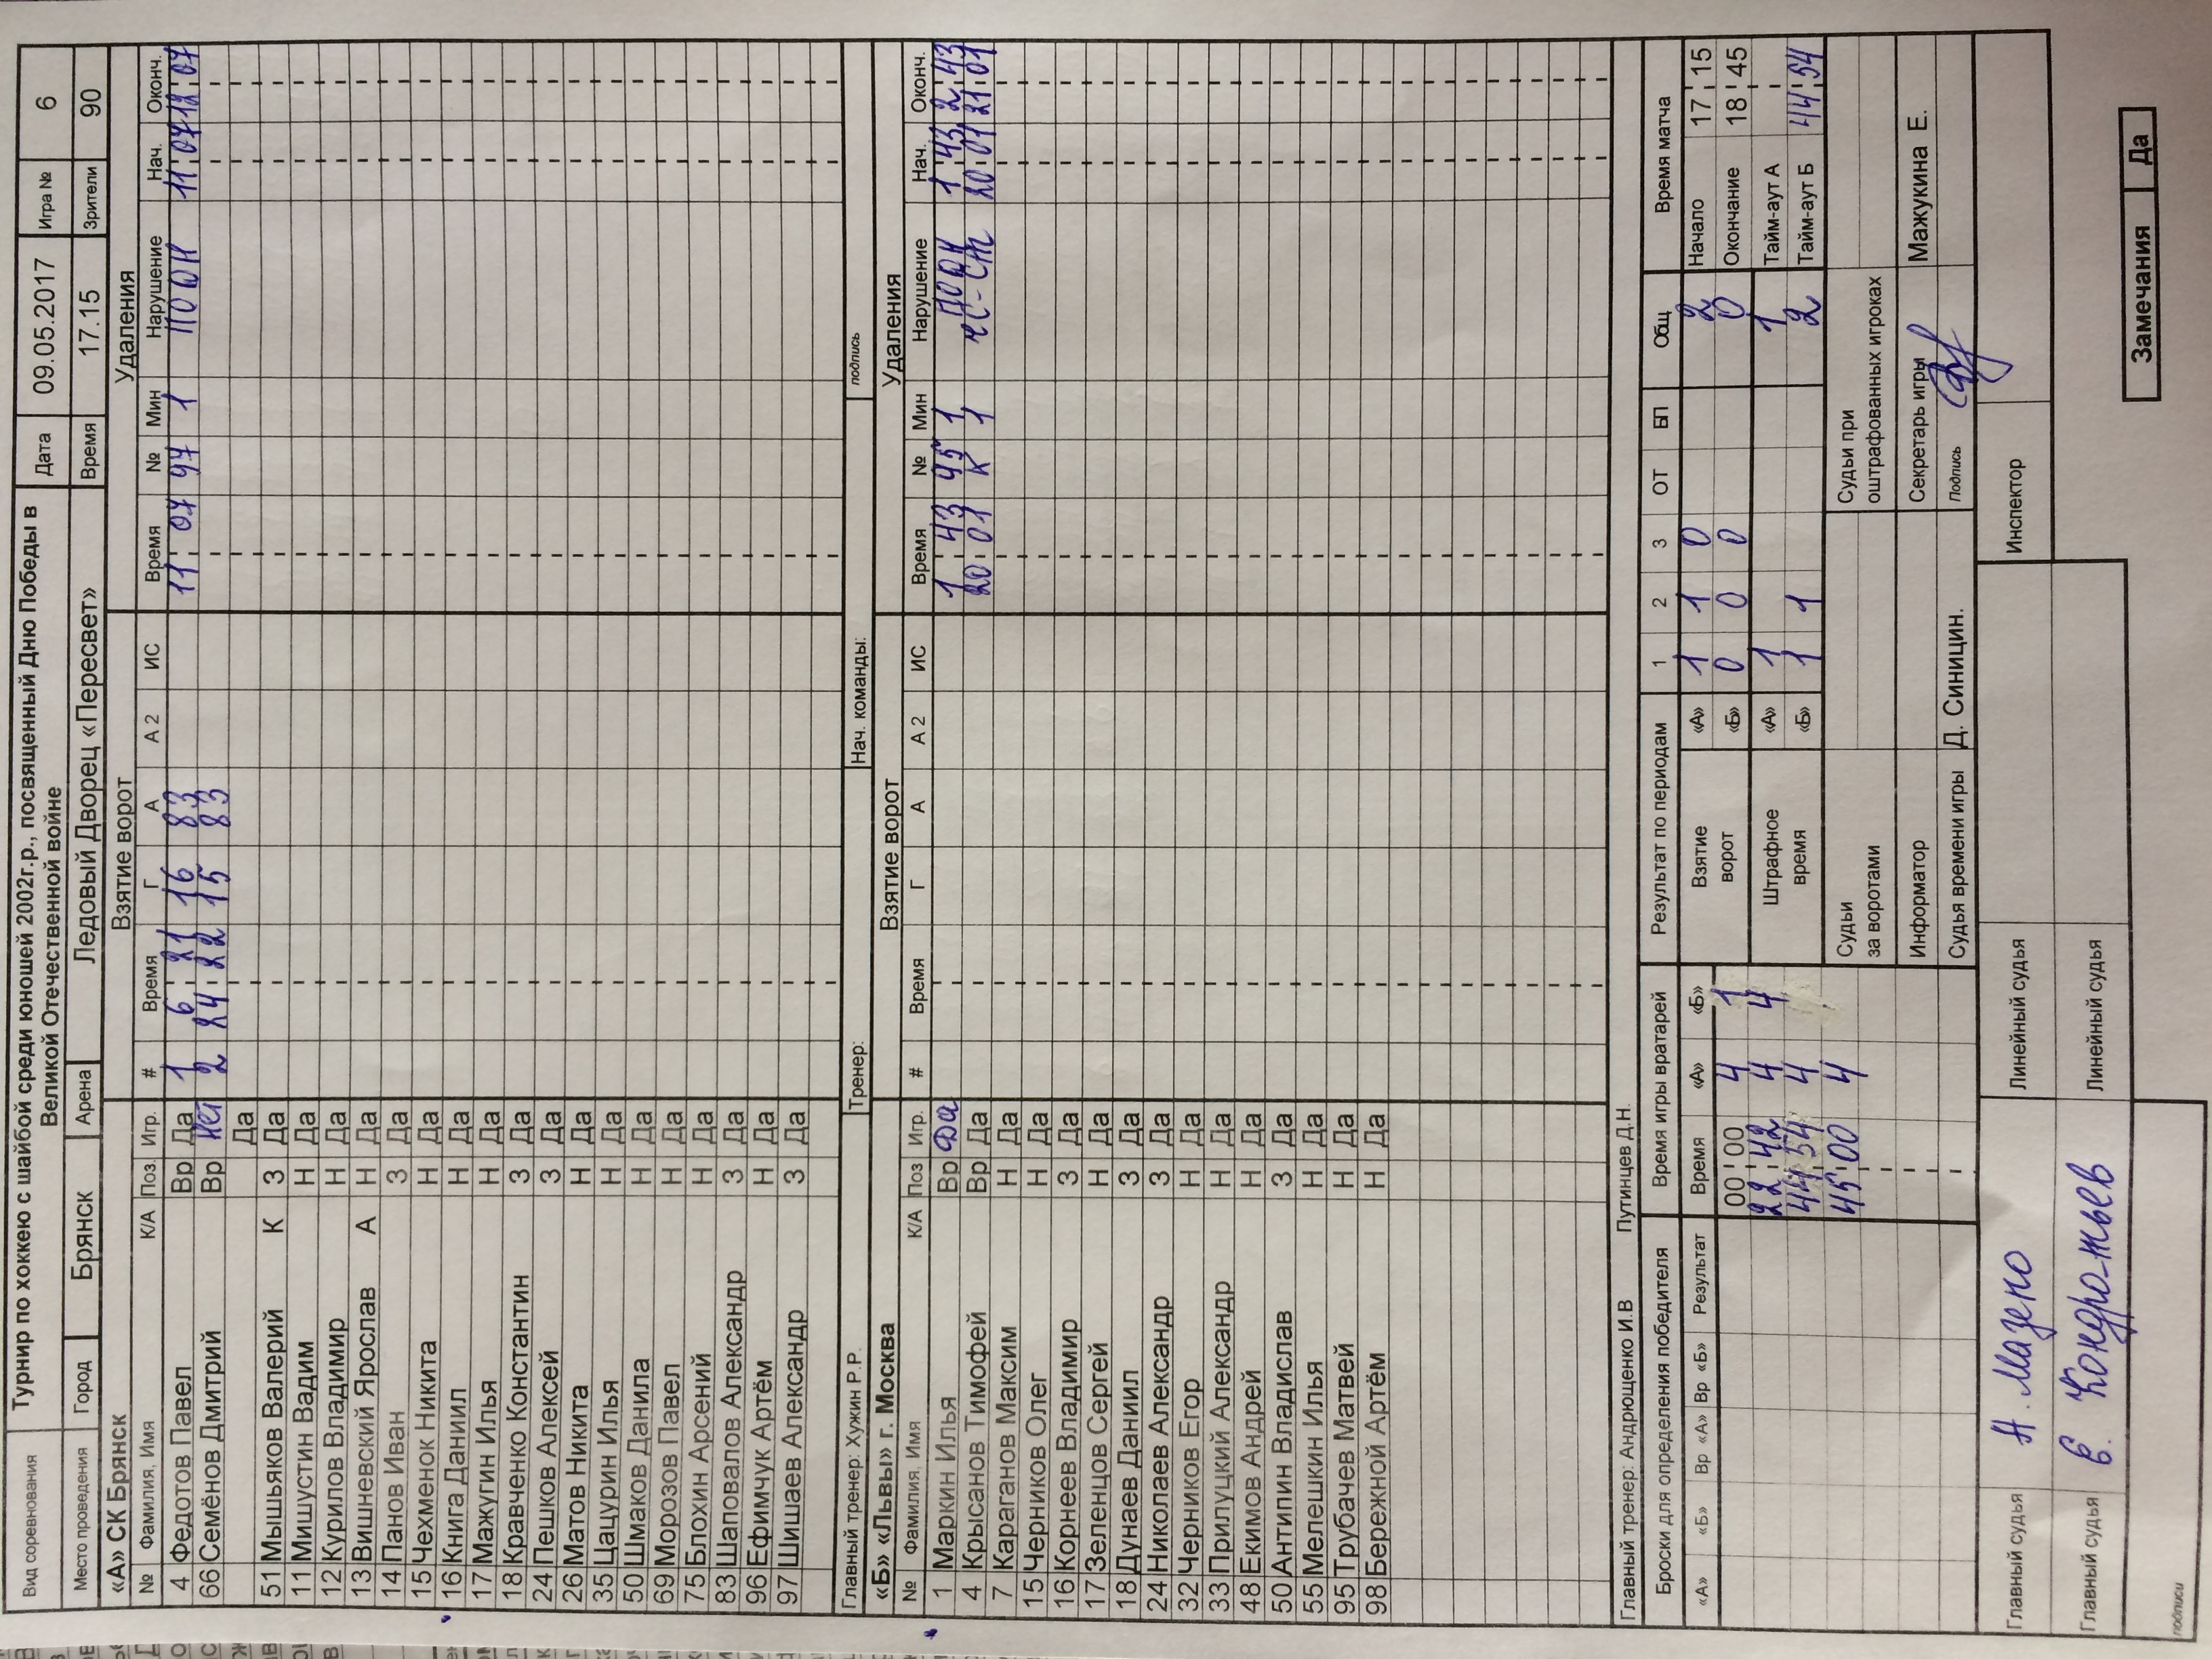 Вид соревнования Турнир по хоккею с шайбой среди юношей 2002г.р., посвященный Дню Победы в Великой Отечественной войне Дата 09.05.2017 Игра № 6
Место проведения Город БРЯНСК Арена Ледовый Дворец «Пересвет» Время 17.15 Зрители 90
«А» СК Брянск Взятие ворот Удаления
№ Фамилия, Имя К/А Поз. Игр. # Время Г А А 2 ИС Время № Мин Нарушение Нач. Оконч.
4 Федотов Павел Вр Да 1 6 21 16 83 11 07 97 1 ПОДН 11 07 12 07
66 Семёнов Дмитрий Вр Нет 2 24 22 15 83
Да
51 Мышьяков Валерий К З Да
11 Мишустин Вадим Н Да
12 Курилов Владимир Н Да
13 Вишневский Ярослав А Н Да
14 Панов Иван З Да
15 Чехменок Никита Н Да
16 Книга Даниил Н Да
17 Мажугин Илья Н Да
18 Кравченко Константин З Да
24 Пешков Алексей З Да
26 Матов Никита Н Да
35 Цацурин Илья Н Да
50 Шмаков Данила Н Да
69 Морозов Павел Н Да
75 Блохин Арсений Н Да
83 Шаповалов Александр З Да
96 Ефимчук Артём Н Да
97 Шишаев Александр З Да
Главный тренер: Хужин Р.Р. Тренер: Нач. команды: подпись
«Б» «Львы» г. Москва Взятие ворот Удаления
№ Фамилия, Имя К/А Поз Игр. # Время Г А А 2 ИС Время № Мин Нарушение Нач. Оконч.
1 Маркин Илья Вр Да 1 43 95 1 ПОДН 1 43 2 43
4 Крысанов Тимофей Вр Да 20 01 К 1 ЧС-СТ 20 01 21 01
7 Караганов Максим Н Да
15 Черников Олег Н Да
16 Корнеев Владимир З Да
17 Зеленцов Сергей Н Да
18 Дунаев Даниил З Да
24 Николаев Александр З Да
32 Черников Егор Н Да
33 Прилуцкий Александр Н Да
48 Екимов Андрей Н Да
50 Антипин Владислав З Да
55 Мелешкин Илья Н Да
95 Трубачев Матвей Н Да
98 Бережной Артём Н Да
Главный тренер: Андрющенко И.В Путинцев Д.Н.
Броски для определения победителя Время игры вратарей Результат по периодам 1 2 3 ОТ БП Общ Время матча
«А» «Б» Вр «А» Вр «Б» Результат Время «А» «Б» Взятие ворот «А» 1 1 0 2 Начало 17 15
00 00 4 1 «Б» 0 0 0 0 Окончание 18 45
22 42 4 4 Штрафное время «А» 1 1 Тайм-аут А
44 54 4 «Б» 1 1 2 Тайм-аут Б 44 54
45 00 4 Судьи за воротами Судьи при оштрафованных игроках
Информатор Секретарь игры Мажукина Е.
Судья времени игры Д. Синицин. Подпись
Главный судья Н. Мазепо Линейный судья Инспектор
Главный судья Е. Кондратьев Линейный судья
подписи
Замечания Да